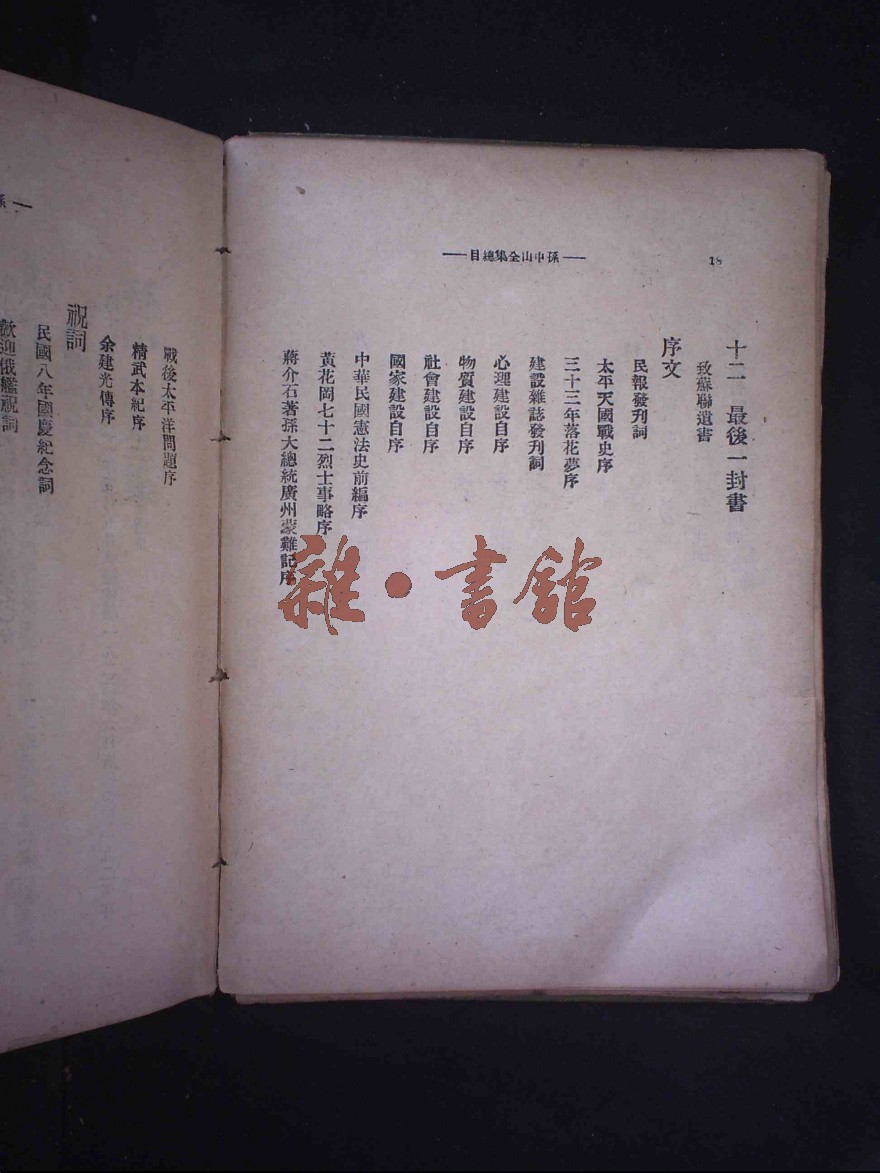 —孫中山全集總目—
18
十二 最後一封書
致蘇聯遺書
序文
民報發刊詞
太平天國戰史序
三十三年落花夢序
建設雜誌發刊詞
心理建設自序
物質建設自序
社會建設自序
國家建設自序
中華民國憲法史前編序
黃花岡七十二烈士事略序
蔣介石著孫大總統廣州蒙難記序
戰後太平洋問題序
精武本紀序
余建光傳序
祝詞
民國八年國慶紀念詞
歡迎俄艦祝詞
雜·書館